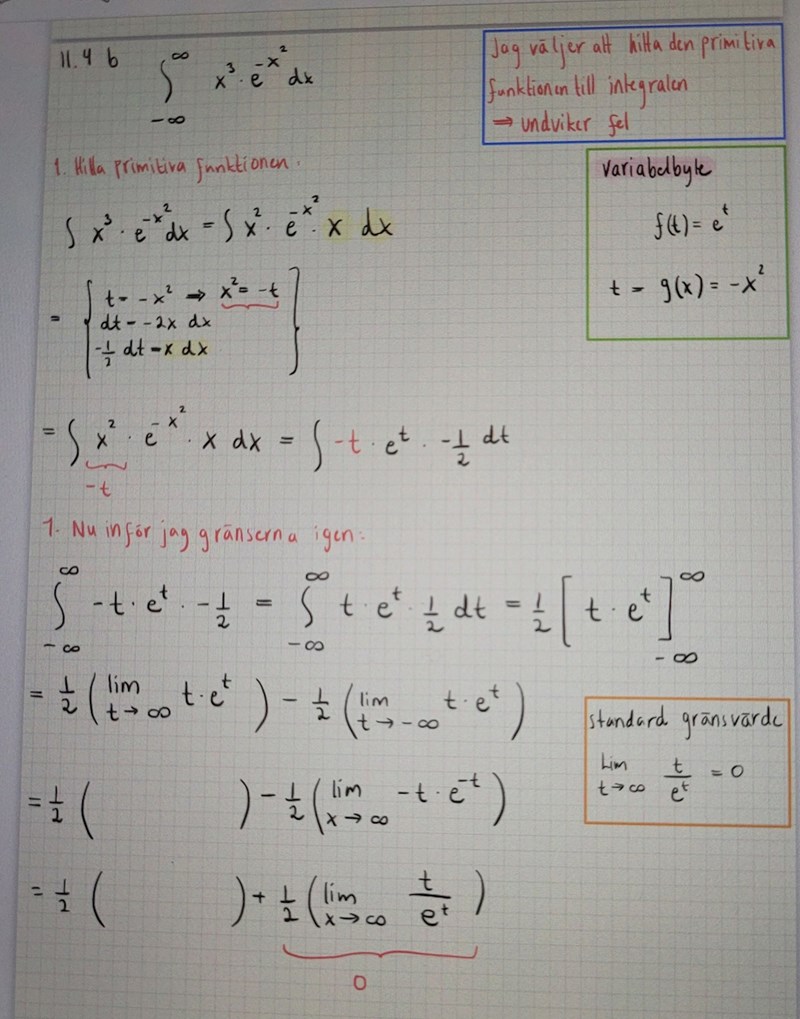 11.4 b ∫_{-∞}^{∞} x³ · e^{-x²} dx
Jag väljer att hitta den primitiva
funktionen till integralen
⇒ undviker fel
1. Hitta primitiva funktionen.
variabelbyte
f(t) = e^t
t = g(x) = -x²
∫ x³ · e^{-x²} dx = ∫ x² · e^{-x²} · x dx
= { t = -x² ⇒ x² = -t
dt = -2x dx
-1/2 dt = x dx }
= ∫ x² · e^{-x²} · x dx = ∫ -t · e^t · -1/2 dt
-t
1. Nu inför jag gränserna igen:
∫_{-∞}^{∞} -t · e^t · -1/2 = ∫_{-∞}^{∞} t · e^t · 1/2 dt = 1/2 [t · e^t]_{-∞}^{∞}
= 1/2 (lim_{t→∞} t · e^t) - 1/2 (lim_{t→-∞} t · e^t)
standard gränsvärde
Lim_{t→∞} t/e^t = 0
= 1/2 ( ) - 1/2 (lim_{x→∞} -t · e^{-t})
= 1/2 ( ) + 1/2 (lim_{x→∞} t/e^t)
0